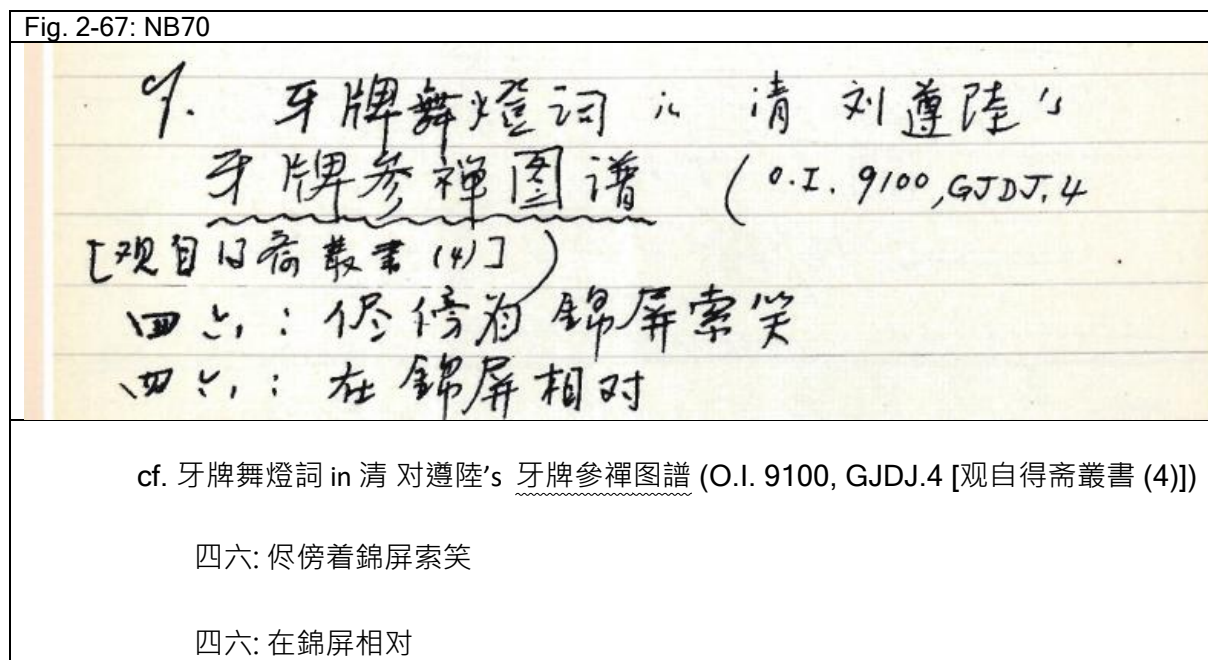 Fig. 2-67: NB70
cf. 牙牌舞燈詞 in 清 刘遵陸's
牙牌参禪图谱 (O.I. 9100, GJDJ.4
[观自得斋叢書 (4)])
四六: 侭傍着錦屏索笑
四六: 在錦屏相对
cf. 牙牌舞燈詞 in 清 对遵陸's 牙牌參禪图譜 (O.I. 9100, GJDJ.4 [观自得斋叢書 (4)])
四六: 侭傍着錦屏索笑
四六: 在錦屏相对